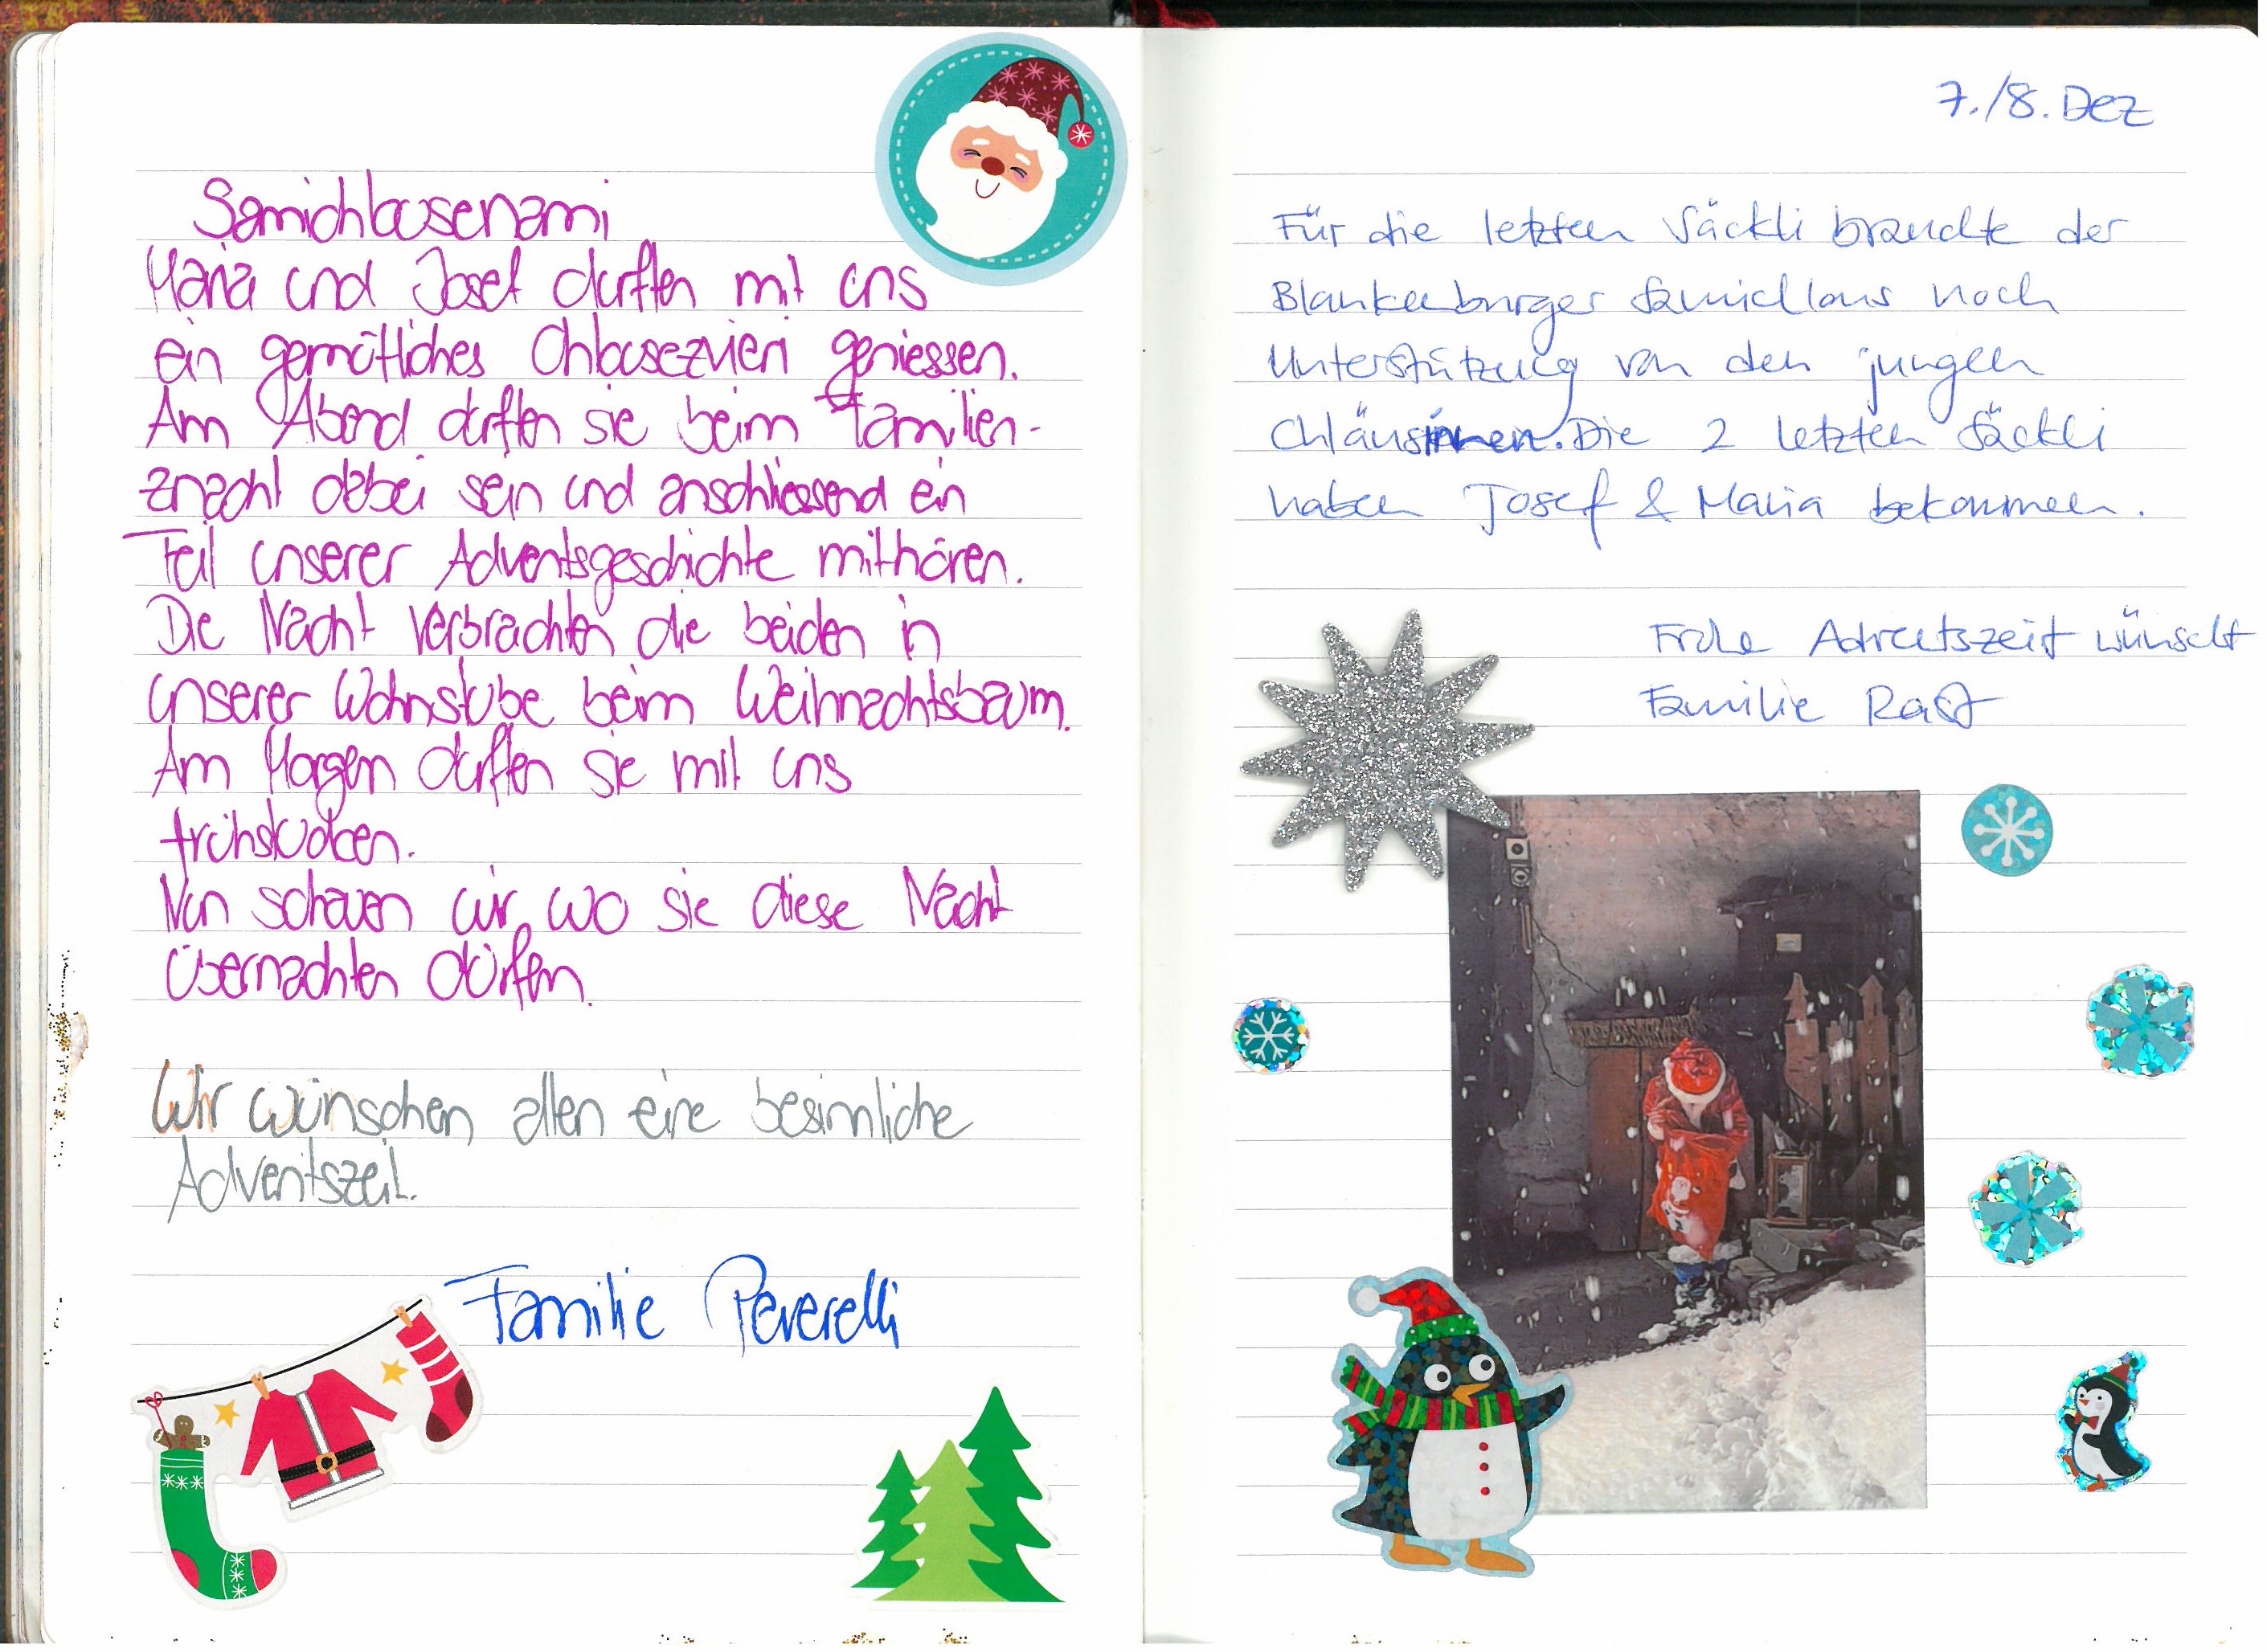 Samichlausenami
Maria und Josef durften mit uns
ein gemütliches Chlausezvieri geniessen.
Am Abend durften sie beim Familien-
znacht dabei sein und anschliessend ein
Teil unserer Adventsgeschichte mithören.
Die Nacht verbrachten die beiden in
unserer Wohnstube beim Weihnachtsbaum.
Am Morgen durften sie mit uns
frühstücken.
Nun schauen wir, wo sie diese Nacht
übernachten dürfen.
Wir wünschen allen eine besinnliche
Adventszeit.
Familie Peverelli
7./8. Dez
Für die letzten Säckli brauchte der
Blankenburger Samichlaus noch
Unterstützung von den jungen
Chläusinnen. Die 2 letzten Säckli
haben Josef & Maria bekommen.
Frohe Adventszeit wünscht
Familie Rast